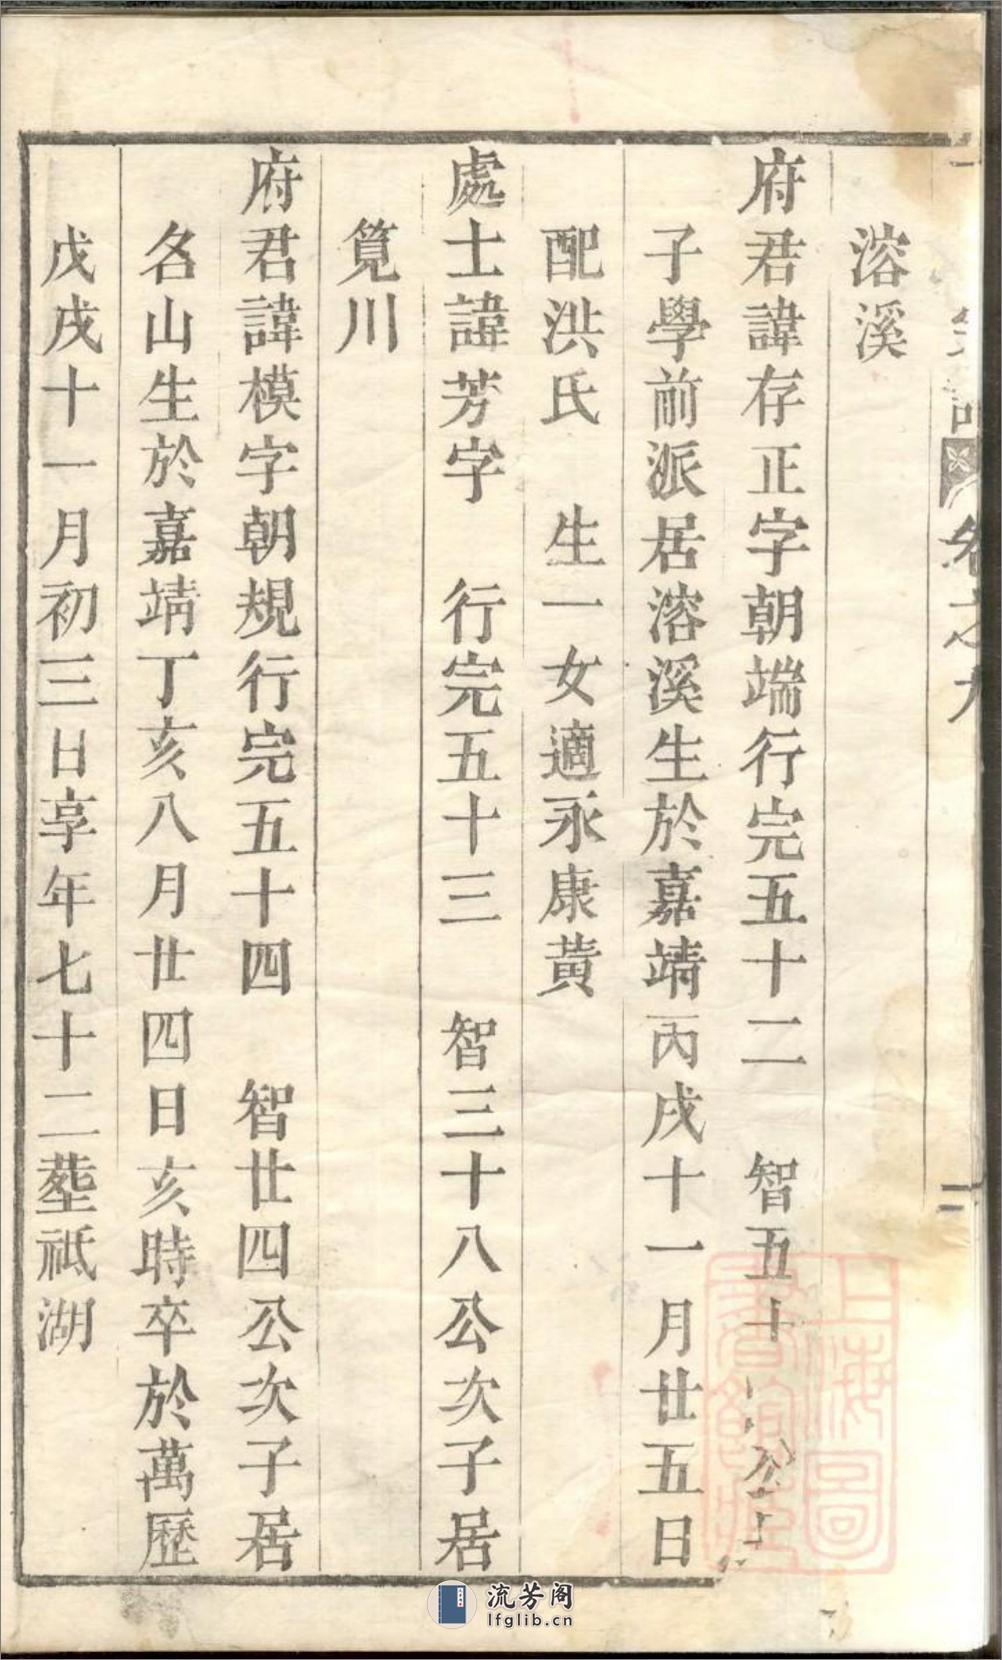 卷之九
二
溶溪
府君諱存正字朝端行完五十二 智五十
子學前派居溶溪生於嘉靖丙戌十一月廿五日
配洪氏 生一女適永康黄
處士諱芳字 行完五十三 智三十八公次子居
筧川
府君諱模字朝規行完五十四 智廿四公次子居
名山生於嘉靖丁亥八月廿四日亥時卒於萬歷
戊戌十一月初三日享年七十二塟祗湖
上海圖書館藏
流芳阁
lfglib.cn